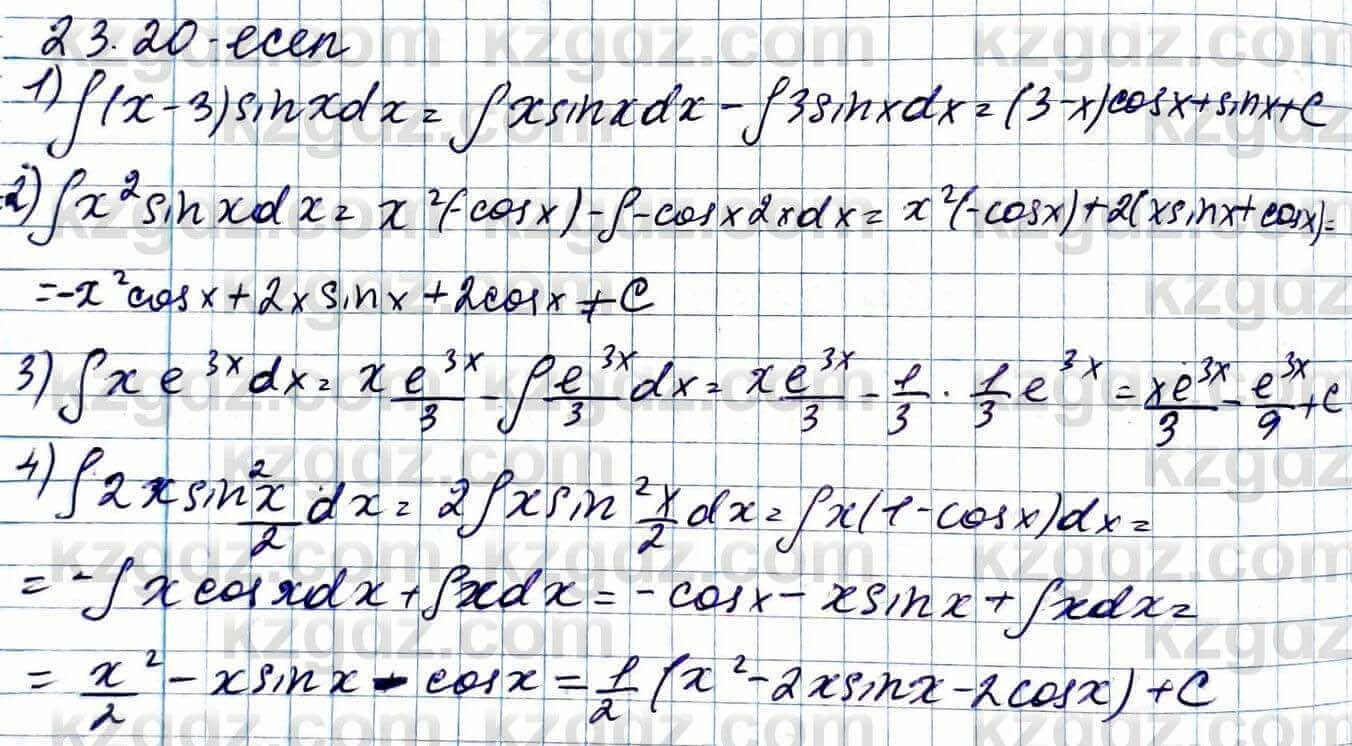 23.20-есеп
1) ∫(x-3)sinxdx = ∫xsinxdx - ∫3sinxdx = (3-x)cosx+sinx+C
2) ∫x²sinxdx = x²(-cosx) - ∫-cosx2xdx = x²(-cosx)+2(xsinx+cosx)=
=-x²cosx+2xsinx+2cosx+C
3) ∫xe^{3x}dx = x e^{3x}/3 - ∫e^{3x}/3 dx = xe^{3x}/3 - 1/3 · 1/3 e^{3x} = xe^{3x}/3 - e^{3x}/9 + C
4) ∫2xsin² x/2 dx = 2∫xsin² x/2 dx = ∫x(1-cosx)dx =
= -∫xcosxdx+∫xdx = -cosx-xsinx+∫xdx =
= x²/2 - xsinx - cosx = 1/2 (x²-2xsinx-2cosx)+C
kzgdz.com